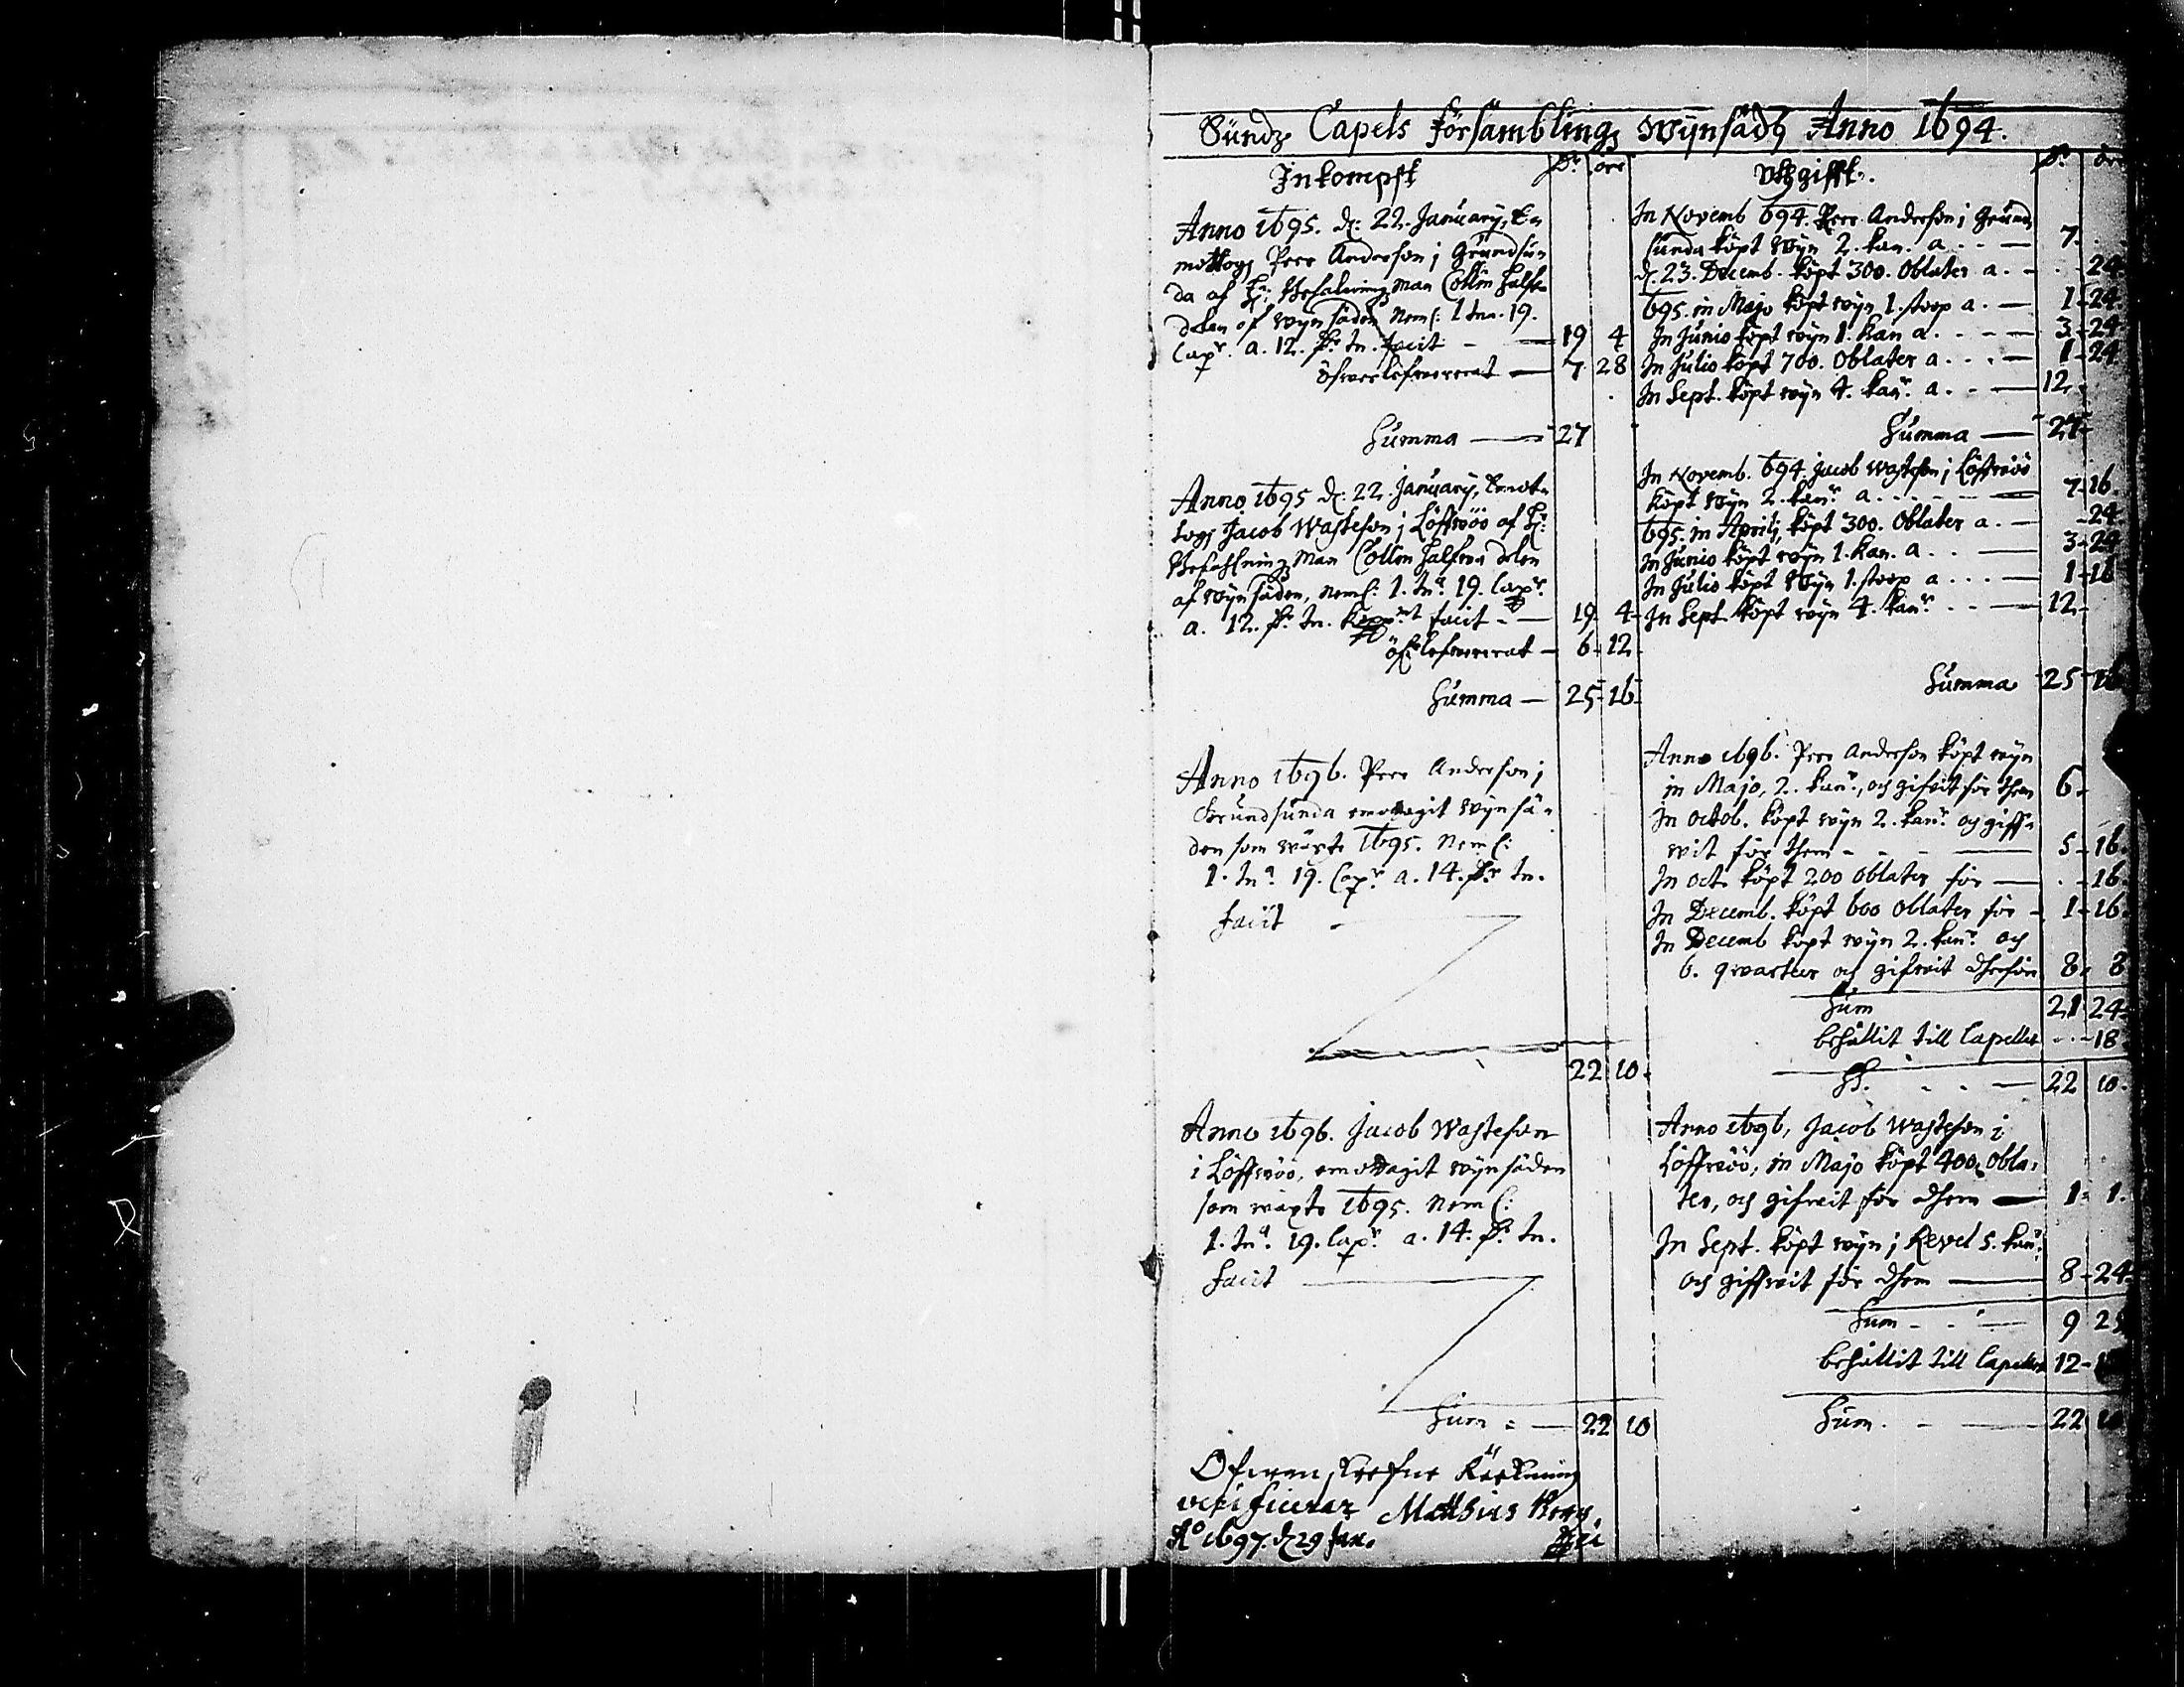 Sundz Capels församblings wÿnsädz Anno 1694.
Inkompst Dr. öre
Anno 1695. d: 22. Januarÿ, Em
mottogs Peer Anderson j Grundsun
da af H: Befalningzman Collin halfve
delen af wynsäden Neml: 1 tna. 19.
Capr. a. 12. Dr. tn. facit - 19 4
öfwerlefwererat 7 28
Summa 27
Anno 1695 d: 22. Januarÿ, Emot
togs Jacob Wasteson j Löffwöö af H:
Befahlningzman Collin halfwa delen
af wÿnsäden, neml: 1. tna. 19. Capr.
a. 12. Dr. tn. facit 19 4
öfr lefwererat 6 12
Summa 25 16
Anno 1696. Peer Anderson j
Grundsunda emottagit wÿnsä-
den som wäxte 1695. Neml:
1. tna. 19. Capr. a. 14. Dr. tn.
facit
22 10
Anno 1696. Jacob Wasteson
i Löffwöö, emottagit wÿnsäden
som wäxte 1695. Neml:
1. tna. 19. Capr. a. 14. Dr. tn.
facit
Sum 22 10
Ofwanskrefne Räkning
verificerar Matthias
Ao 1697. d 29 Jan.
Uthgifft. Dr. öre
In Novemb 694. Peer Anderson j Grund
sunda köpt Wÿn 2. kan. a 7
d. 23. Decemb. köpt 300. Oblater a. 24
695. in Majo köpt wÿn 1. stoop a. 1 24
In Junio köpt wÿn 1. kan a. 3 24
In Julio köpt 700. Oblater a 1 24
In Sept. köpt wÿn 4. kanr. a. 12
Summa 27
In Novemb. 694. Jacob Wasteson j Löffwöö
köpt Wÿn 2. kanr. a. 7 16
695. in Aprilj köpt 300. Oblater a. 24
In Junio köpt wÿn 1. kan. a 3 24
In Julio köpt Wÿn 1. stoop a 1 16
In Sept. köpt wÿn 4. kanr. 12
Summa 25 16
Anno 1696. Peer Anderson köpt wÿn
in Majo, 2. kanr., och gifvit för them 6
In Octob. köpt wÿn 2. kanr. och giff-
wit för them 5 16
In oct. köpt 200 oblater för 16
In Decemb. köpt 600 Oblater för 1 16
In Decemb köpt wÿn 2. kanr. och
6. qwarteer och gifwit dherför 8 8
Sum 21 24
behållit till Capellet 18
22 10
Anno 1696, Jacob Wasteson i
Löffwöö, in Majo köpt 400, Obla-
ter, och gifwit för dhem 1 1
In Sept. köpt wÿn j Revel 5. kanr.
och giffwit för dhem 8 24
Sum 9 25
behållit till Capellet 12
Sum. 22 10